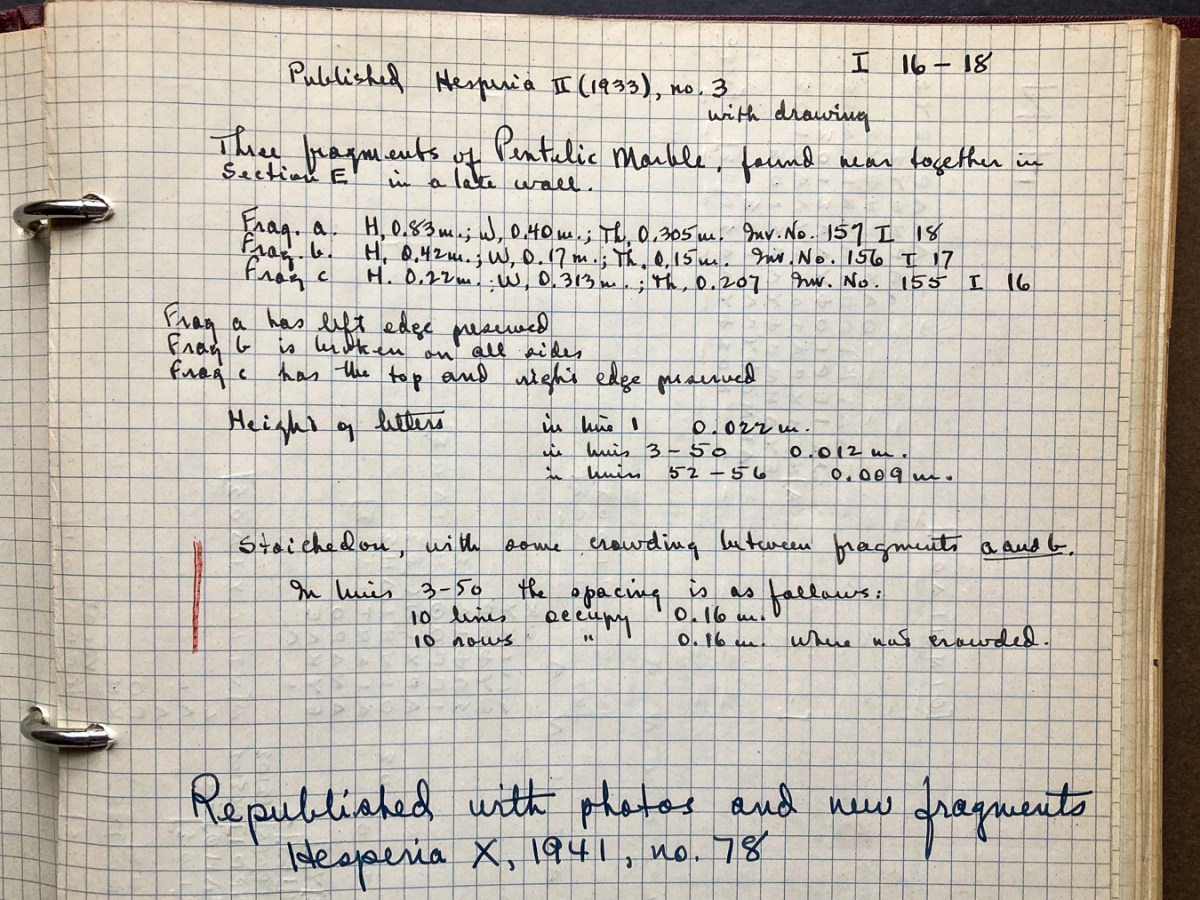 I 16-18
Published Hesperia II (1933), no. 3
with drawing
Three fragments of Pentelic Marble, found near together in
Section E in a late wall.
Frag. a. H, 0.83m.; W, 0.40m.; Th, 0.305m. Inv. No. 157 I 18
Frag. b. H, 0.42m.; W, 0.17m.; Th, 0.15m. Inv. No. 156 I 17
Frag c H. 0.22m.; W, 0.313m.; Th, 0.207 Inv. No. 155 I 16
Frag a has left edge preserved
Frag b is broken on all sides
Frag c has the top and right edge preserved
Height of letters in line 1 0.022m.
in lines 3-50 0.012m.
in lines 52-56 0.009m.
Stoichedon, with some crowding between fragments a and b.
In lines 3-50 the spacing is as follows:
10 lines occupy 0.16m.
10 rows " 0.16m. where not crowded.
Republished with photos and new fragments
Hesperia X, 1941, no. 78